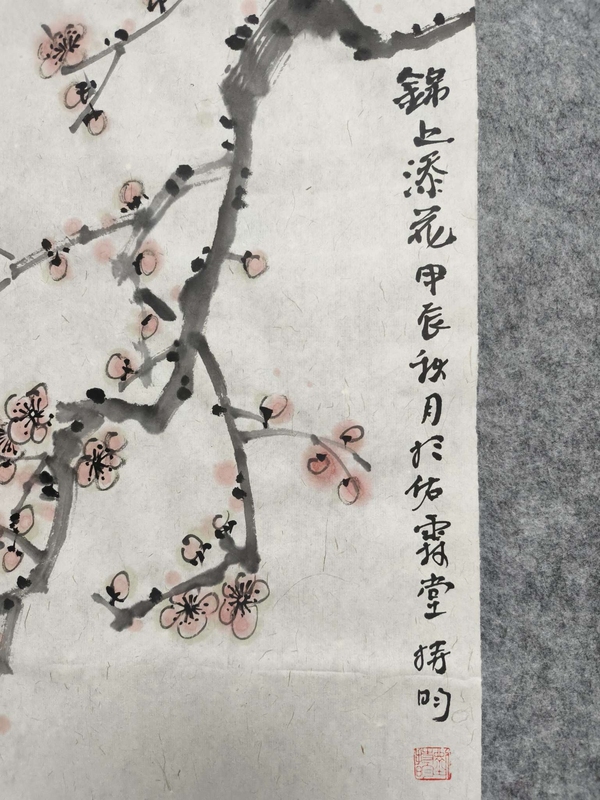 錦上添花甲辰秋月於佑霖堂 持昀